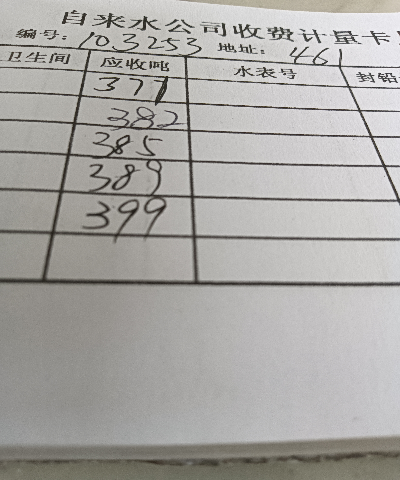 自来水公司收费计量卡
编号: 103253 地址: 461
卫生间 应收吨 水表号 封铅
377
382
385
389
399